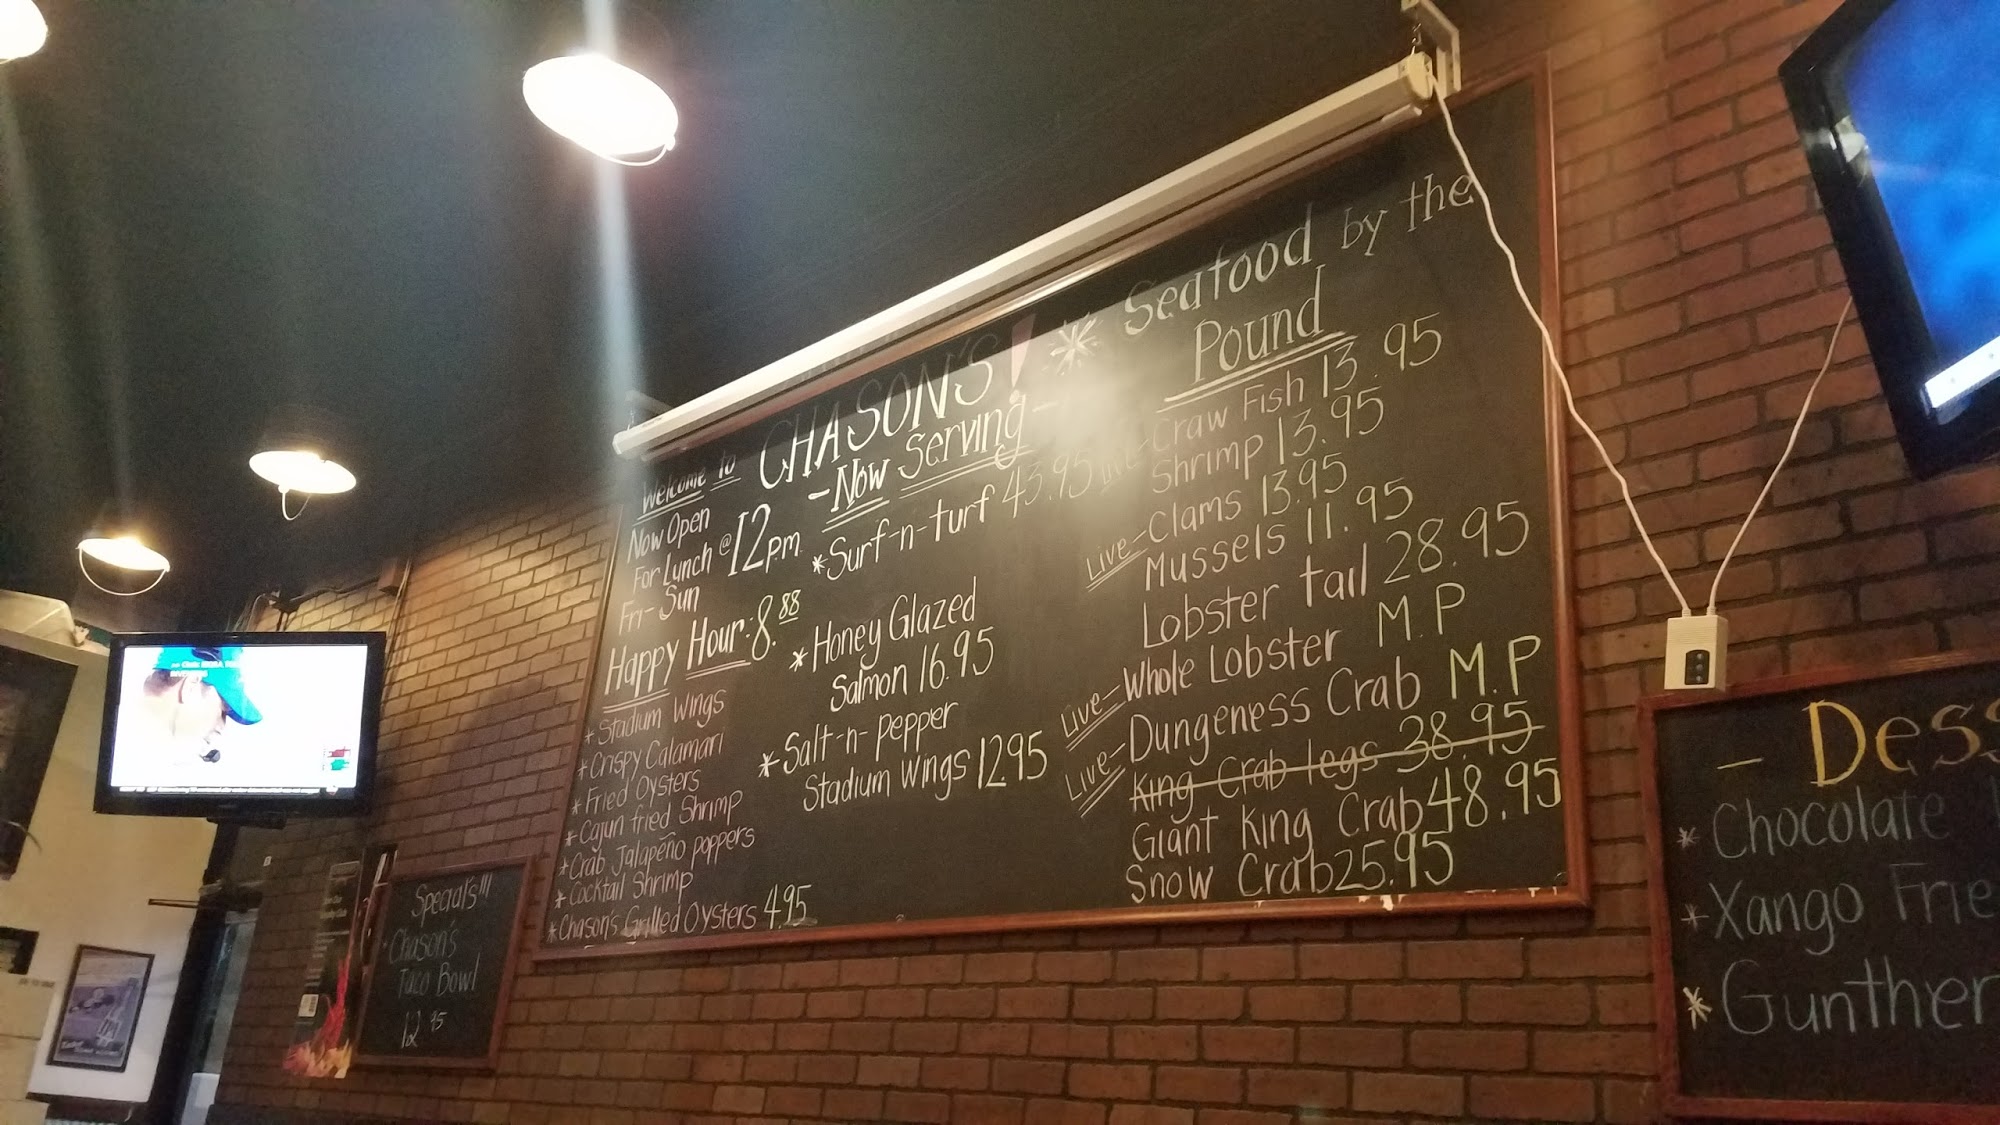 Welcome to CHASON'S!
Now Open
For Lunch @ 12pm
Fri-Sun
Happy Hour: 8.88
* Stadium Wings
* Crispy Calamari
* Fried Oysters
* Cajun fried Shrimp
* Crab Jalapeño poppers
* Cocktail Shrimp
* Chason's Grilled Oysters 4.95
-Now Serving-
* Surf-n-turf 43.95
* Honey Glazed
Salmon 16.95
* Salt-n-pepper
Stadium Wings 12.95
* Seafood by the
Pound
Live-Craw Fish 13.95
Shrimp 13.95
Live-Clams 13.95
Mussels 11.95
Lobster tail 28.95
Live-Whole Lobster M.P
Live-Dungeness Crab M.P
King Crab legs 38.95
Giant King Crab 48.95
Snow Crab 25.95
Special's!!!
Chason's
Taco Bowl
12.95
- Dess
* Chocolate
* Xango Frie
* Gunther